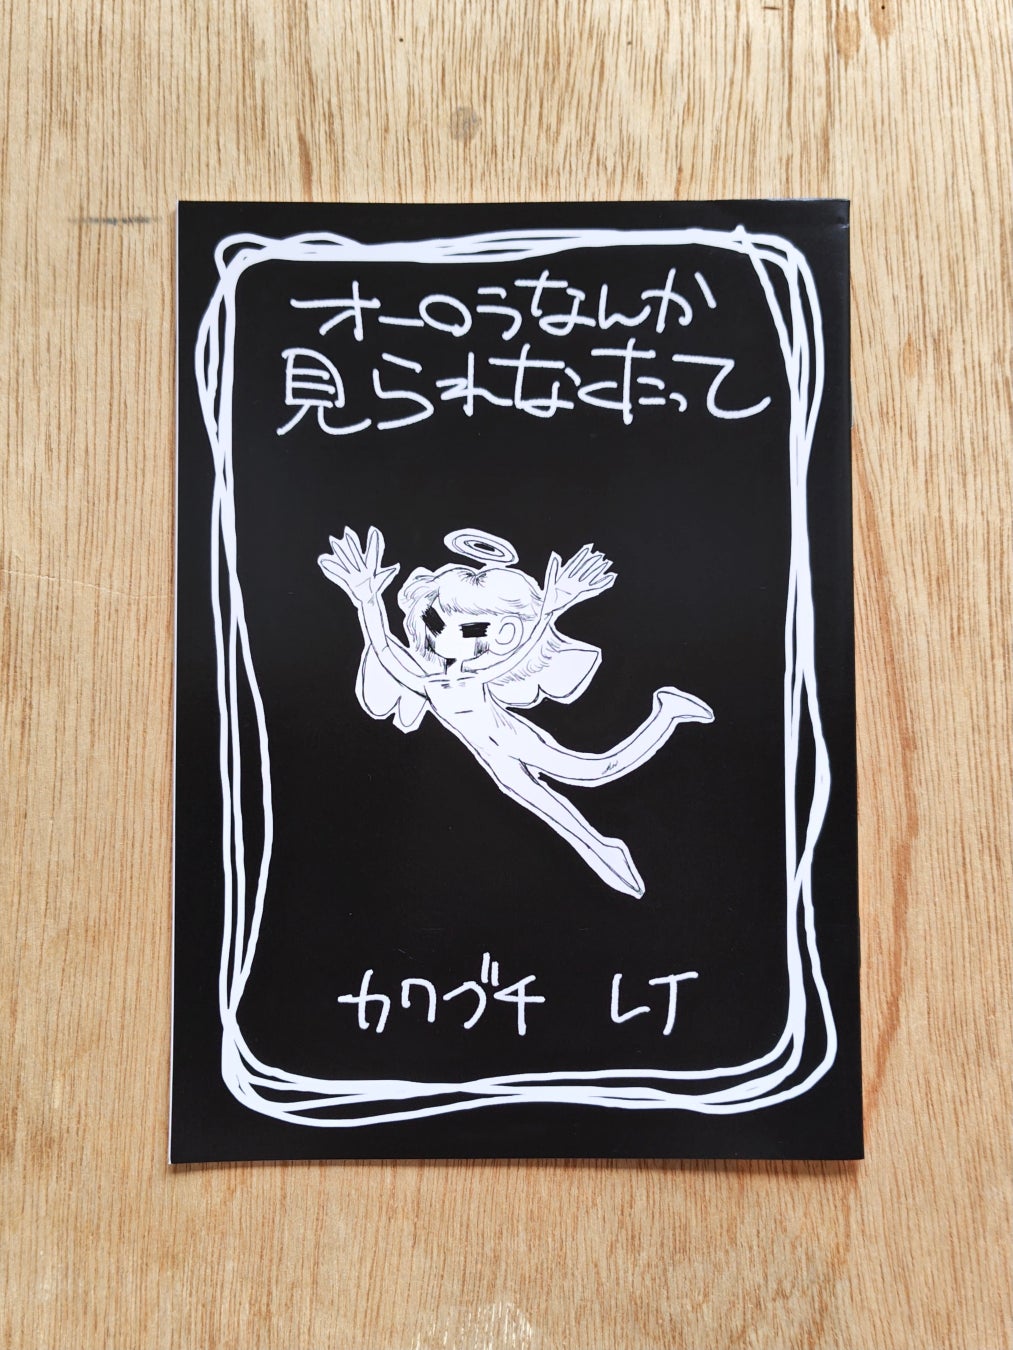 オーロラなんか
見られなくたって
カワグチ　レイ